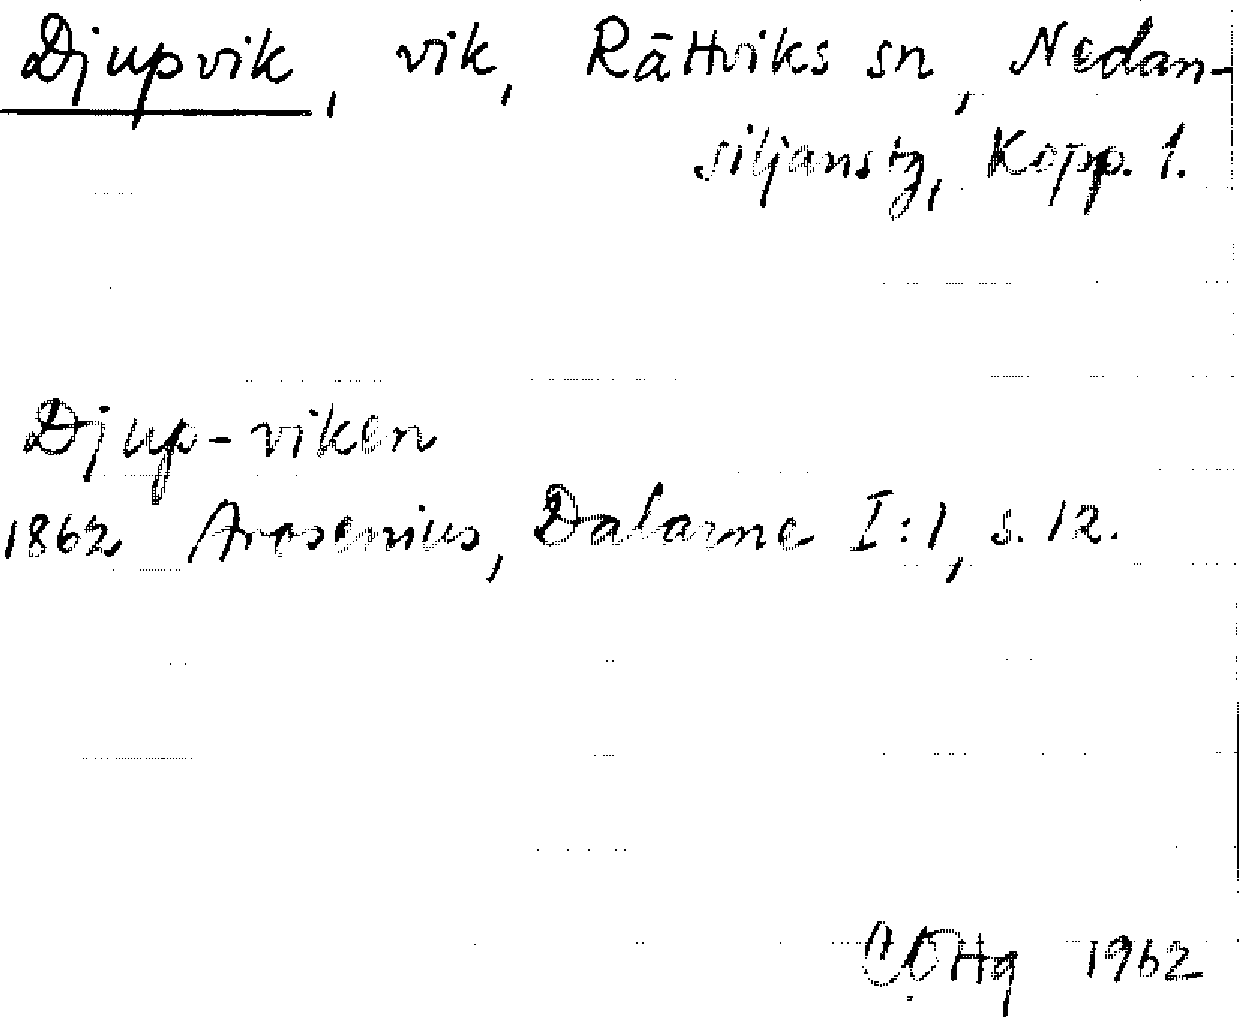 Djupvik, vik, Rättviks sn, Nedan-
siljans tg, Kopp. l.
Djup-viken
1862 Arosenius, Dalarne I:1, s. 12.
1962